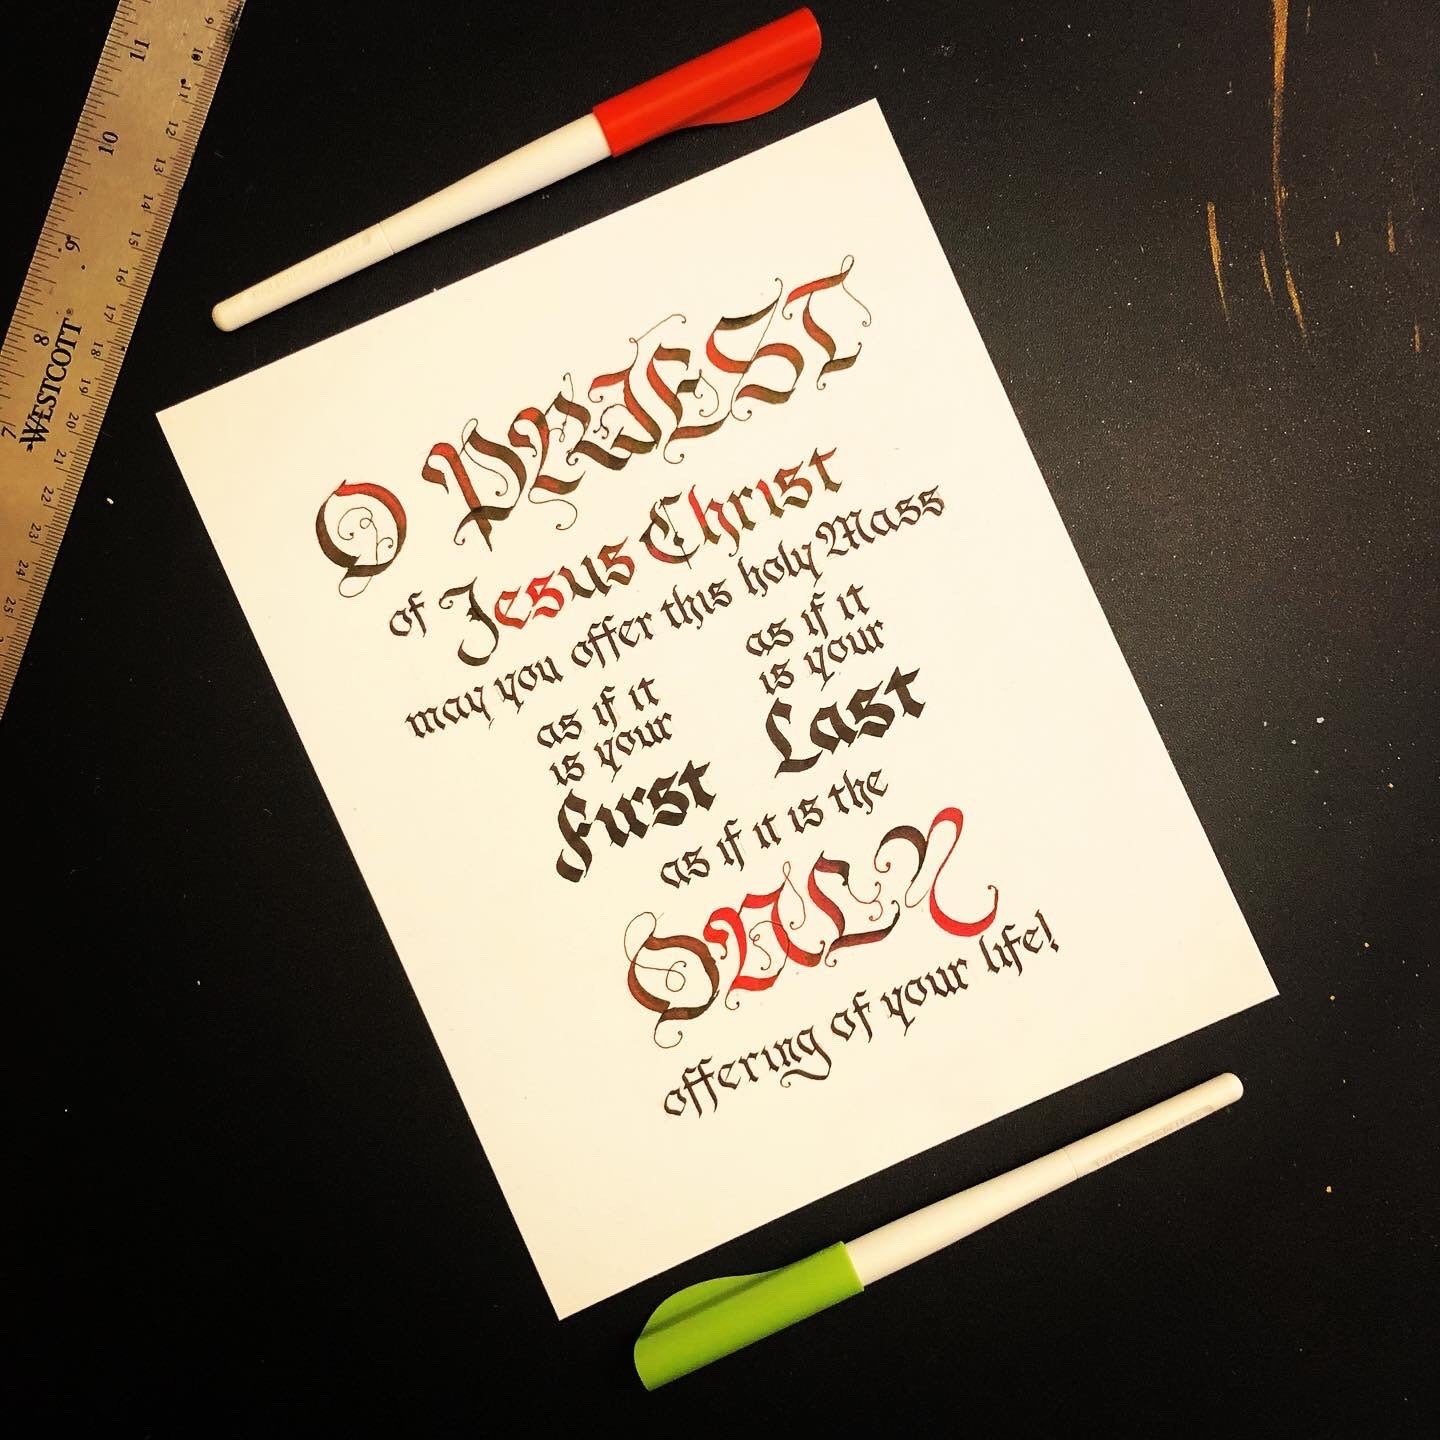 O PRIEST
of Jesus Christ
may you offer this holy Mass
as if it
is your
First
as if it
is your
Last
as if it is the
ONLY
offering of your life!
WESTCOTT®
11
10
9
8
7
9
10
11
12
13
14
15
16
17
18
19
20
21
22
23
24
25